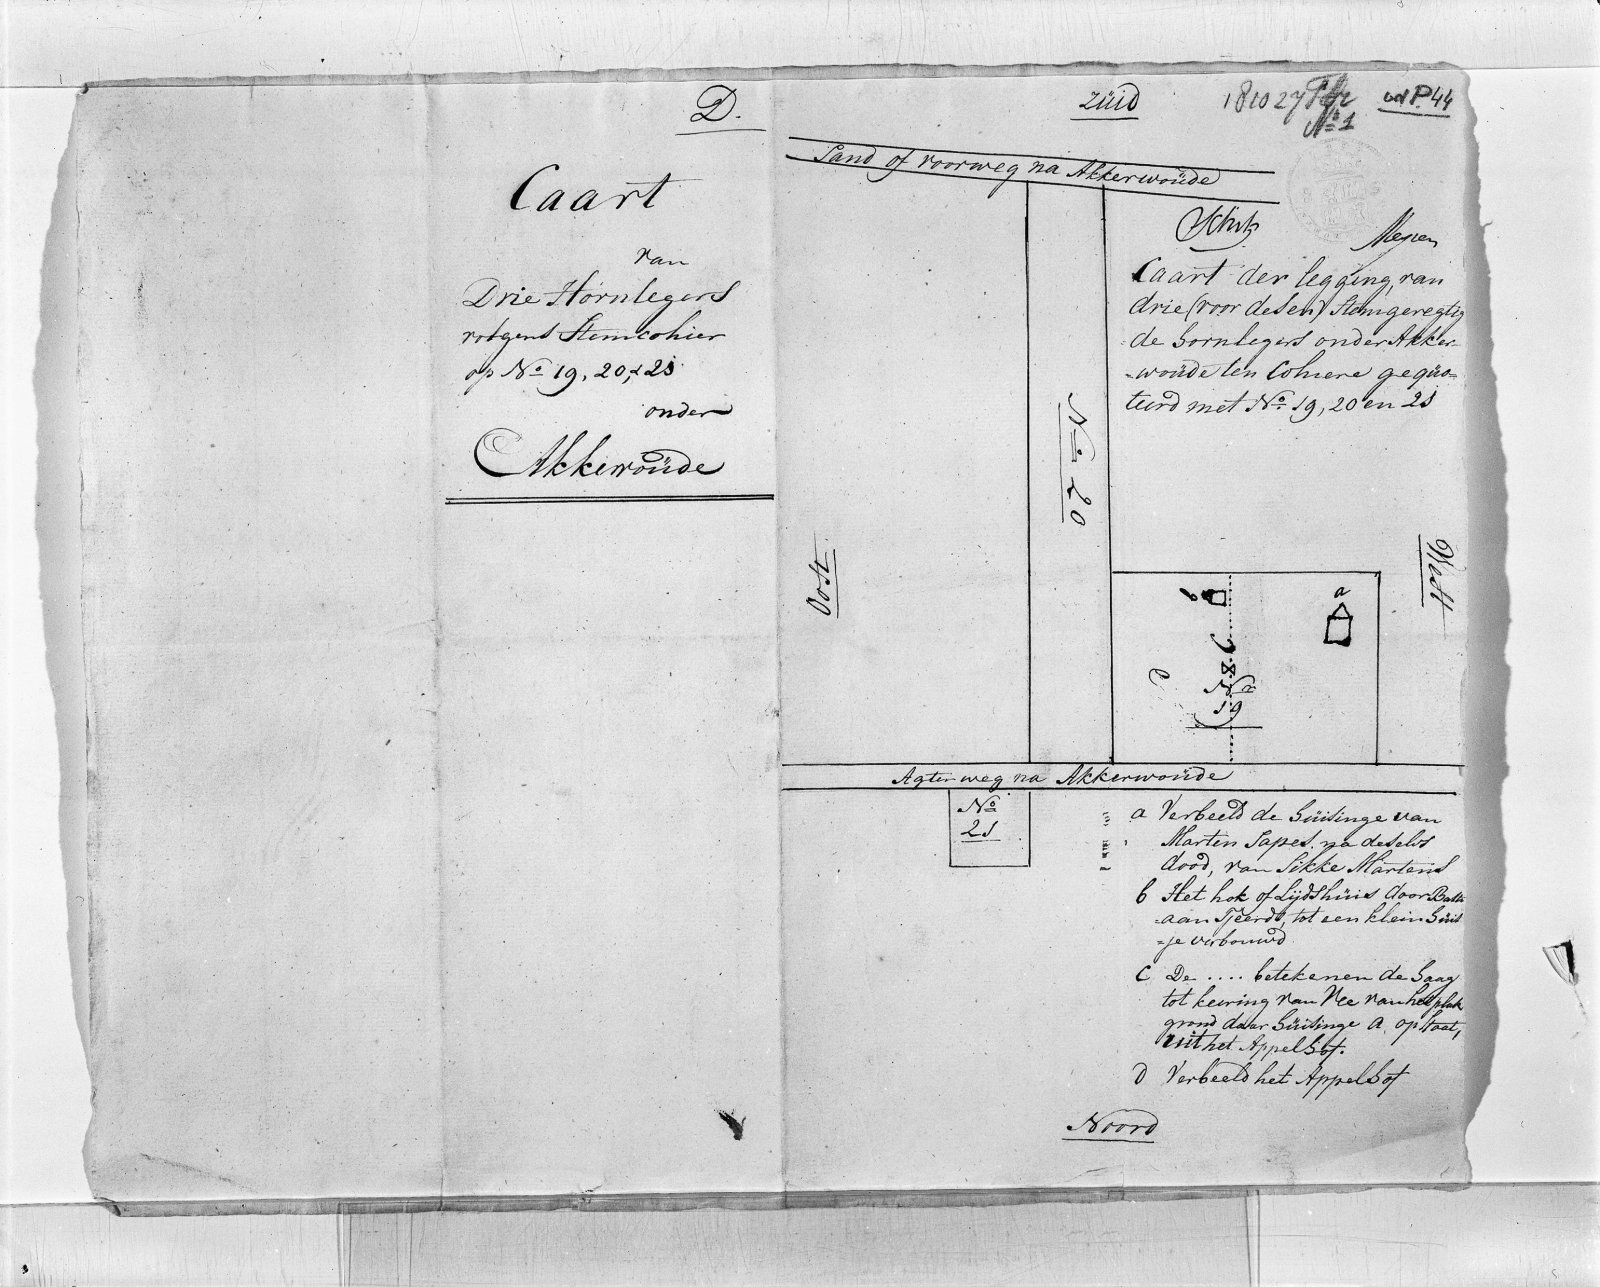 D.
Caart
van
Drie Hornlegers
volgens Stemcohier
op No 19, 20, & 21
onder
Akkerwoüde
züid
1810 27
No 1
P. 44
Sand of voorweg na Akkerwoüde
Caart der legging van
drie (voor desen) Stemgeregtig
de hornlegers onder Akker-
-woüde ten Cohiere geqüo-
teerd met No. 19, 20 en 21
No. 20
Oost
West
a
b
c
d
No
19
Agterweg na Akkerwoüde
No
21
a Verbeeld de hüisinge van
Marten Sapes, na deselvs
dood, van Sikke Martens
b Het hok of Lijdshüis door Basti
-aan Tjeerds, tot een klein hüis
-je verbouwd
c De .... betekenen de haag
tot keering van Vee van het plak
grond daar hüisinge a op staat,
uit het Appelhof.
d Verbeeld het Appelhof
Noord